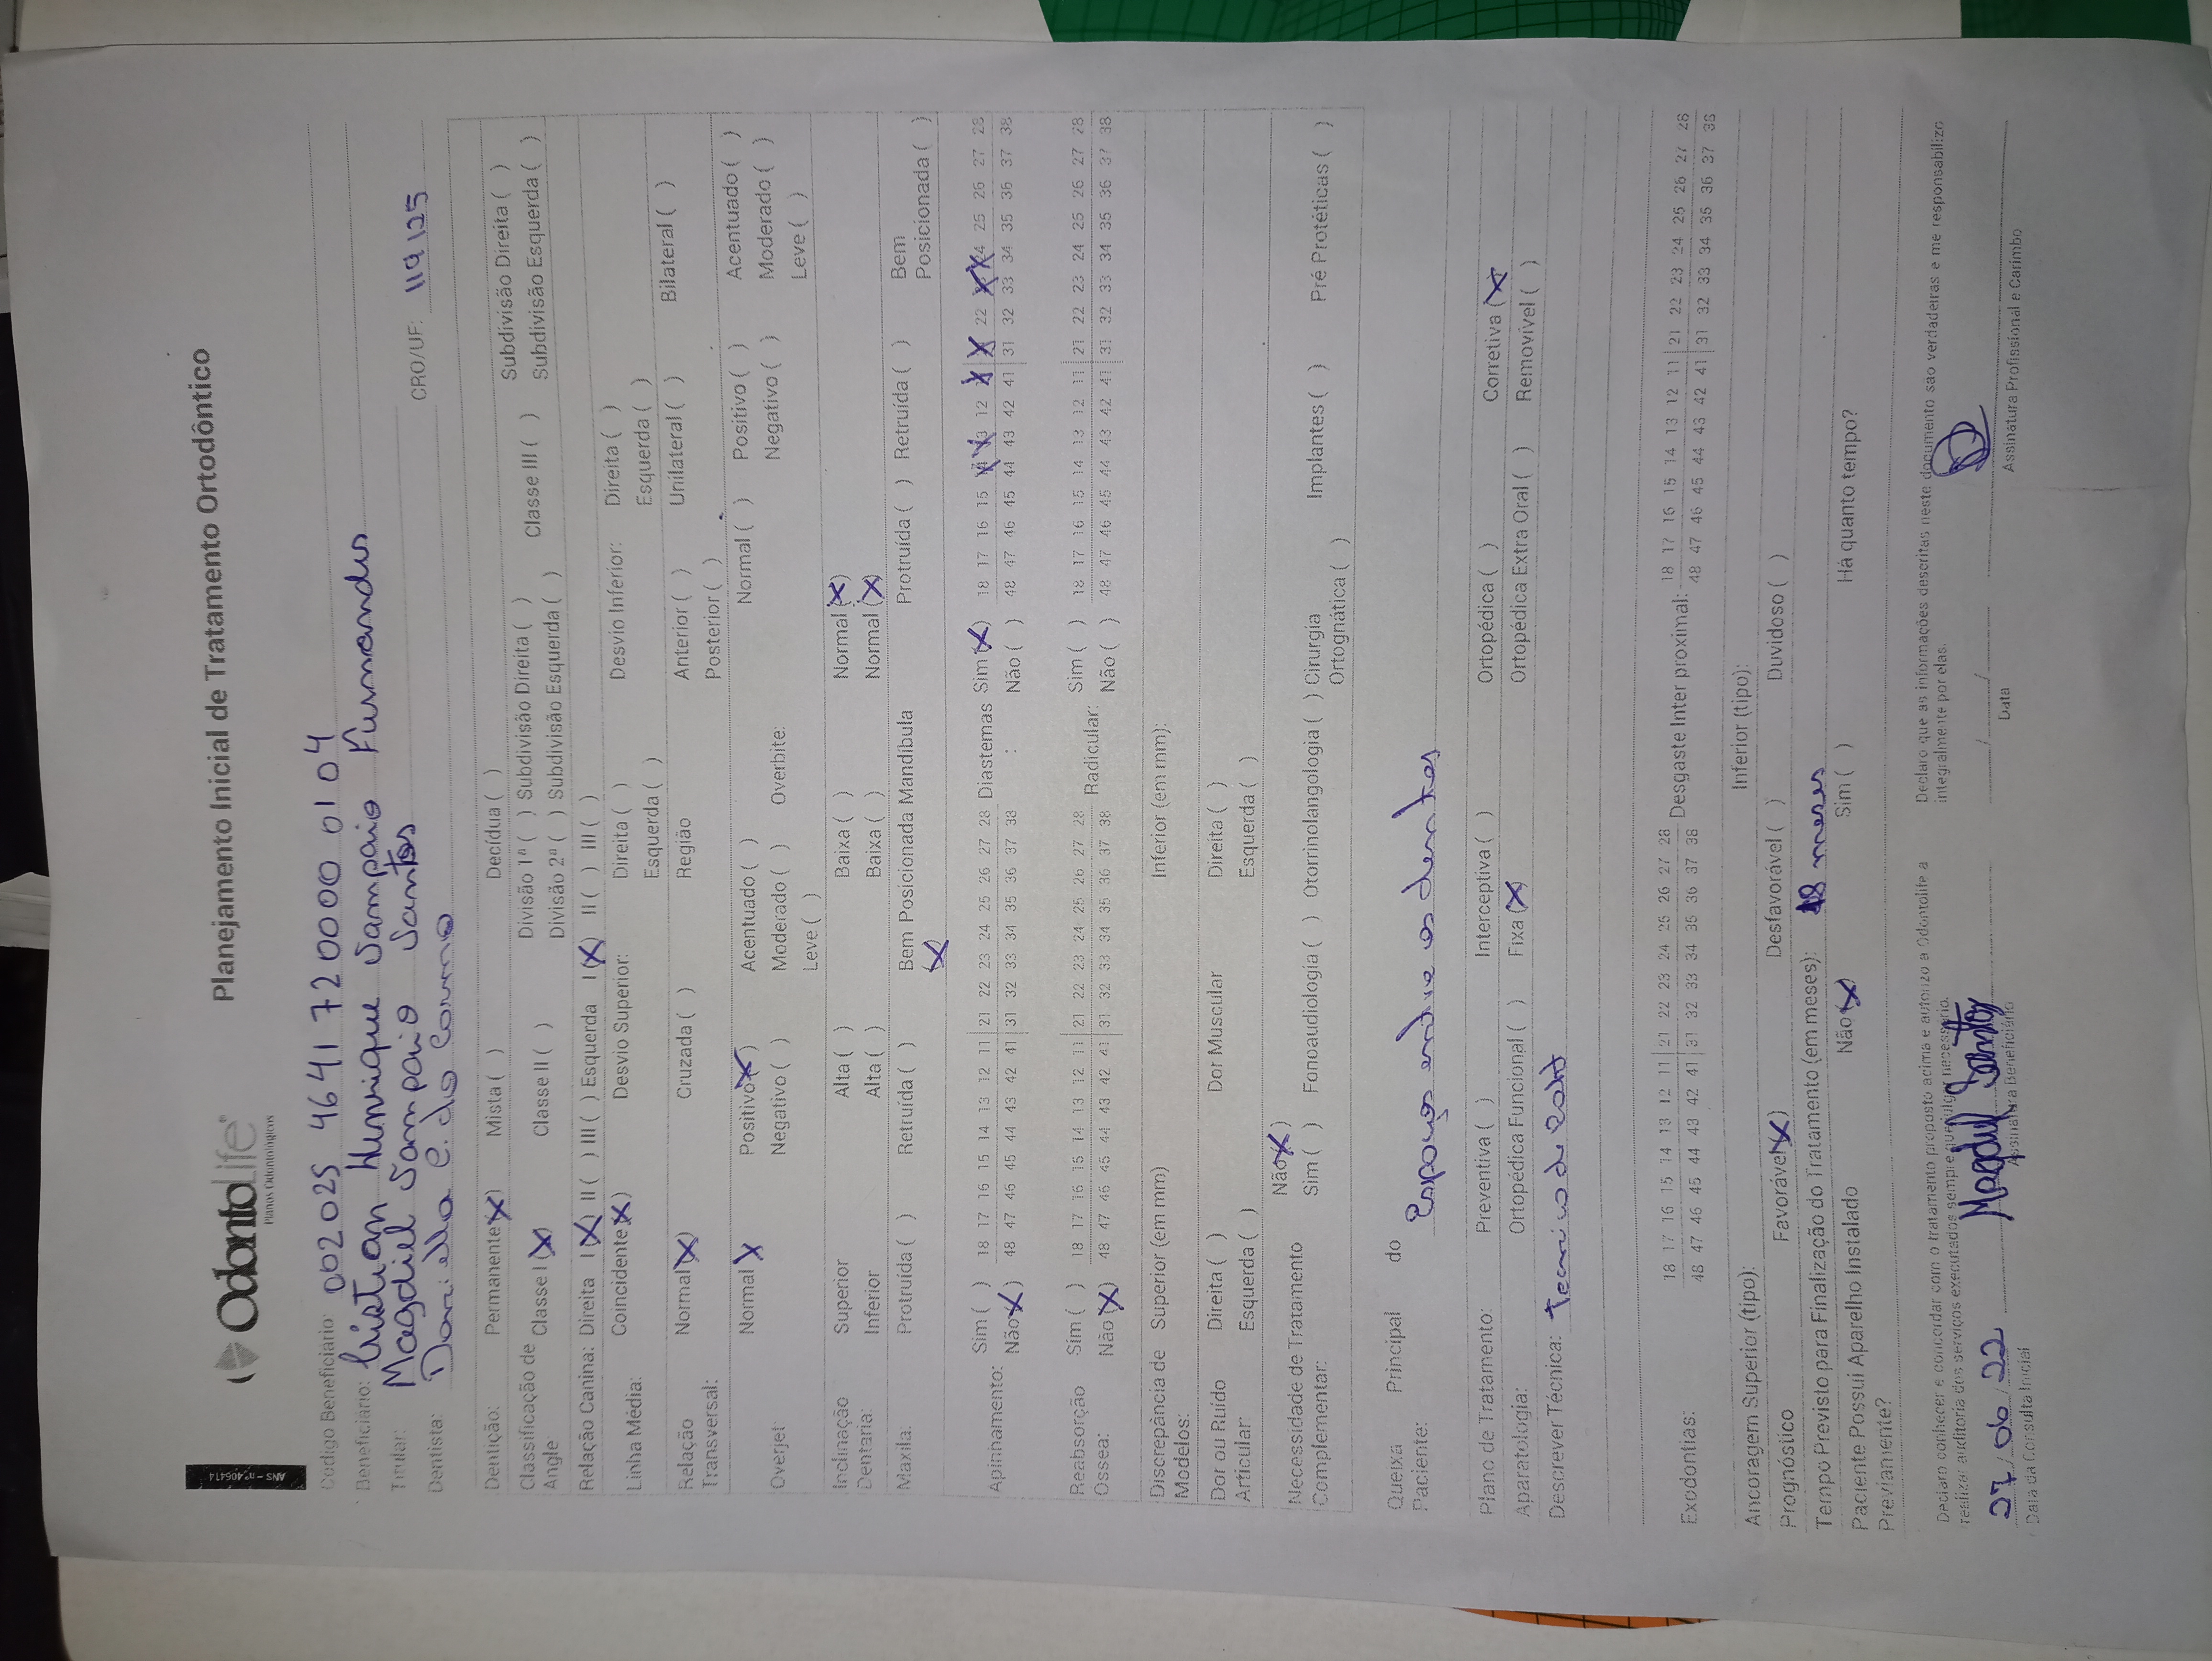 ANS - nº 406414
OdontoLife®
Planos Odontológicos
Planejamento Inicial de Tratamento Ortodôntico
Código Beneficiário: 002025 4641 720000 0104
Beneficiário: Cristian Henrique Sampaio Fernandes
Titular: Magdiel Sampaio Santos
Dentista: Danielle C. do Carmo CRO/UF: 119125
Dentição: Permanente (X) Mista ( ) Decídua ( )
Classificação de Angle Classe I (X) Classe II ( ) Divisão 1ª ( ) Subdivisão Direita ( ) Classe III ( ) Subdivisão Direita ( )
Divisão 2ª ( ) Subdivisão Esquerda ( ) Subdivisão Esquerda ( )
Relação Canina: Direita I (X) II ( ) III ( ) Esquerda I (X) II ( ) III ( )
Linha Média: Coincidente (X) Desvio Superior: Direita ( ) Desvio Inferior: Direita ( )
Esquerda ( ) Esquerda ( )
Relação Transversal: Normal (X) Cruzada ( ) Região Anterior ( ) Unilateral ( ) Bilateral ( )
Posterior ( )
Overjet: Normal X Positivo (X) Acentuado ( ) Overbite: Normal ( ) Positivo ( ) Acentuado ( )
Negativo ( ) Moderado ( ) Negativo ( ) Moderado ( )
Leve ( ) Leve ( )
Inclinação Dentaria: Superior Alta ( ) Baixa ( ) Normal (X)
Inferior Alta ( ) Baixa ( ) Normal (X)
Maxila: Protruída ( ) Retruída ( ) Bem Posicionada (X) Mandíbula Protruída ( ) Retruída ( ) Bem Posicionada ( )
Apinhamento: Sim ( ) 18 17 16 15 14 13 12 11 | 21 22 23 24 25 26 27 28 Diastemas : Sim (X) 18 17 16 15 X X 12 X | X 22 X X 25 26 27 28
Não (X) 48 47 46 45 44 43 42 41 | 31 32 33 34 35 36 37 38 Não ( ) 48 47 46 45 44 43 42 41 | 31 32 33 34 35 36 37 38
Reabsorção Óssea: Sim ( ) 18 17 16 15 14 13 12 11 | 21 22 23 24 25 26 27 28 Radicular: Sim ( ) 18 17 16 15 14 13 12 11 | 21 22 23 24 25 26 27 28
Não (X) 48 47 46 45 44 43 42 41 | 31 32 33 34 35 36 37 38 Não ( ) 48 47 46 45 44 43 42 41 | 31 32 33 34 35 36 37 38
Discrepância de Modelos: Superior (em mm) Inferior (em mm):
Dor ou Ruído Articular: Direita ( ) Dor Muscular Direita ( )
Esquerda ( ) Esquerda ( )
Necessidade de Tratamento Complementar: Não (X)
Sim ( ) Fonoaudiologia ( ) Otorrinolangologia ( ) Cirurgia Ortognática ( ) Implantes ( ) Pré Protéticas ( )
Queixa Principal do Paciente: Espaços entre os dentes
Plano de Tratamento: Preventiva ( ) Interceptiva ( ) Ortopédica ( ) Corretiva (X)
Aparatologia: Ortopédica Funcional ( ) Fixa (X) Ortopédica Extra Oral ( ) Removível ( )
Descrever Técnica: Tecnica de Roth
Exodontias: 18 17 16 15 14 13 12 11 | 21 22 23 24 25 26 27 28 Desgaste Inter proximal: 18 17 16 15 14 13 12 11 | 21 22 23 24 25 26 27 28
48 47 46 45 44 43 42 41 | 31 32 33 34 35 36 37 38 48 47 46 45 44 43 42 41 | 31 32 33 34 35 36 37 38
Ancoragem Superior (tipo): Inferior (tipo):
Prognóstico Favorável (X) Desfavorável ( ) Duvidoso ( )
Tempo Previsto para Finalização do Tratamento (em meses): 18 meses
Paciente Possui Aparelho Instalado Previamente? Não (X) Sim ( ) Há quanto tempo?
Declaro conhecer e concordar com o tratamento proposto acima e autorizo a Odontolife a realizar auditoria dos serviços executados sempre que julgar necessário.
Declaro que as informações descritas neste documento são verdadeiras e me responsabilizo integralmente por elas.
27 / 06 / 22 Magdiel Santos / /
Data da Consulta Inicial Assinatura Beneficiário Data Assinatura Profissional e Carimbo